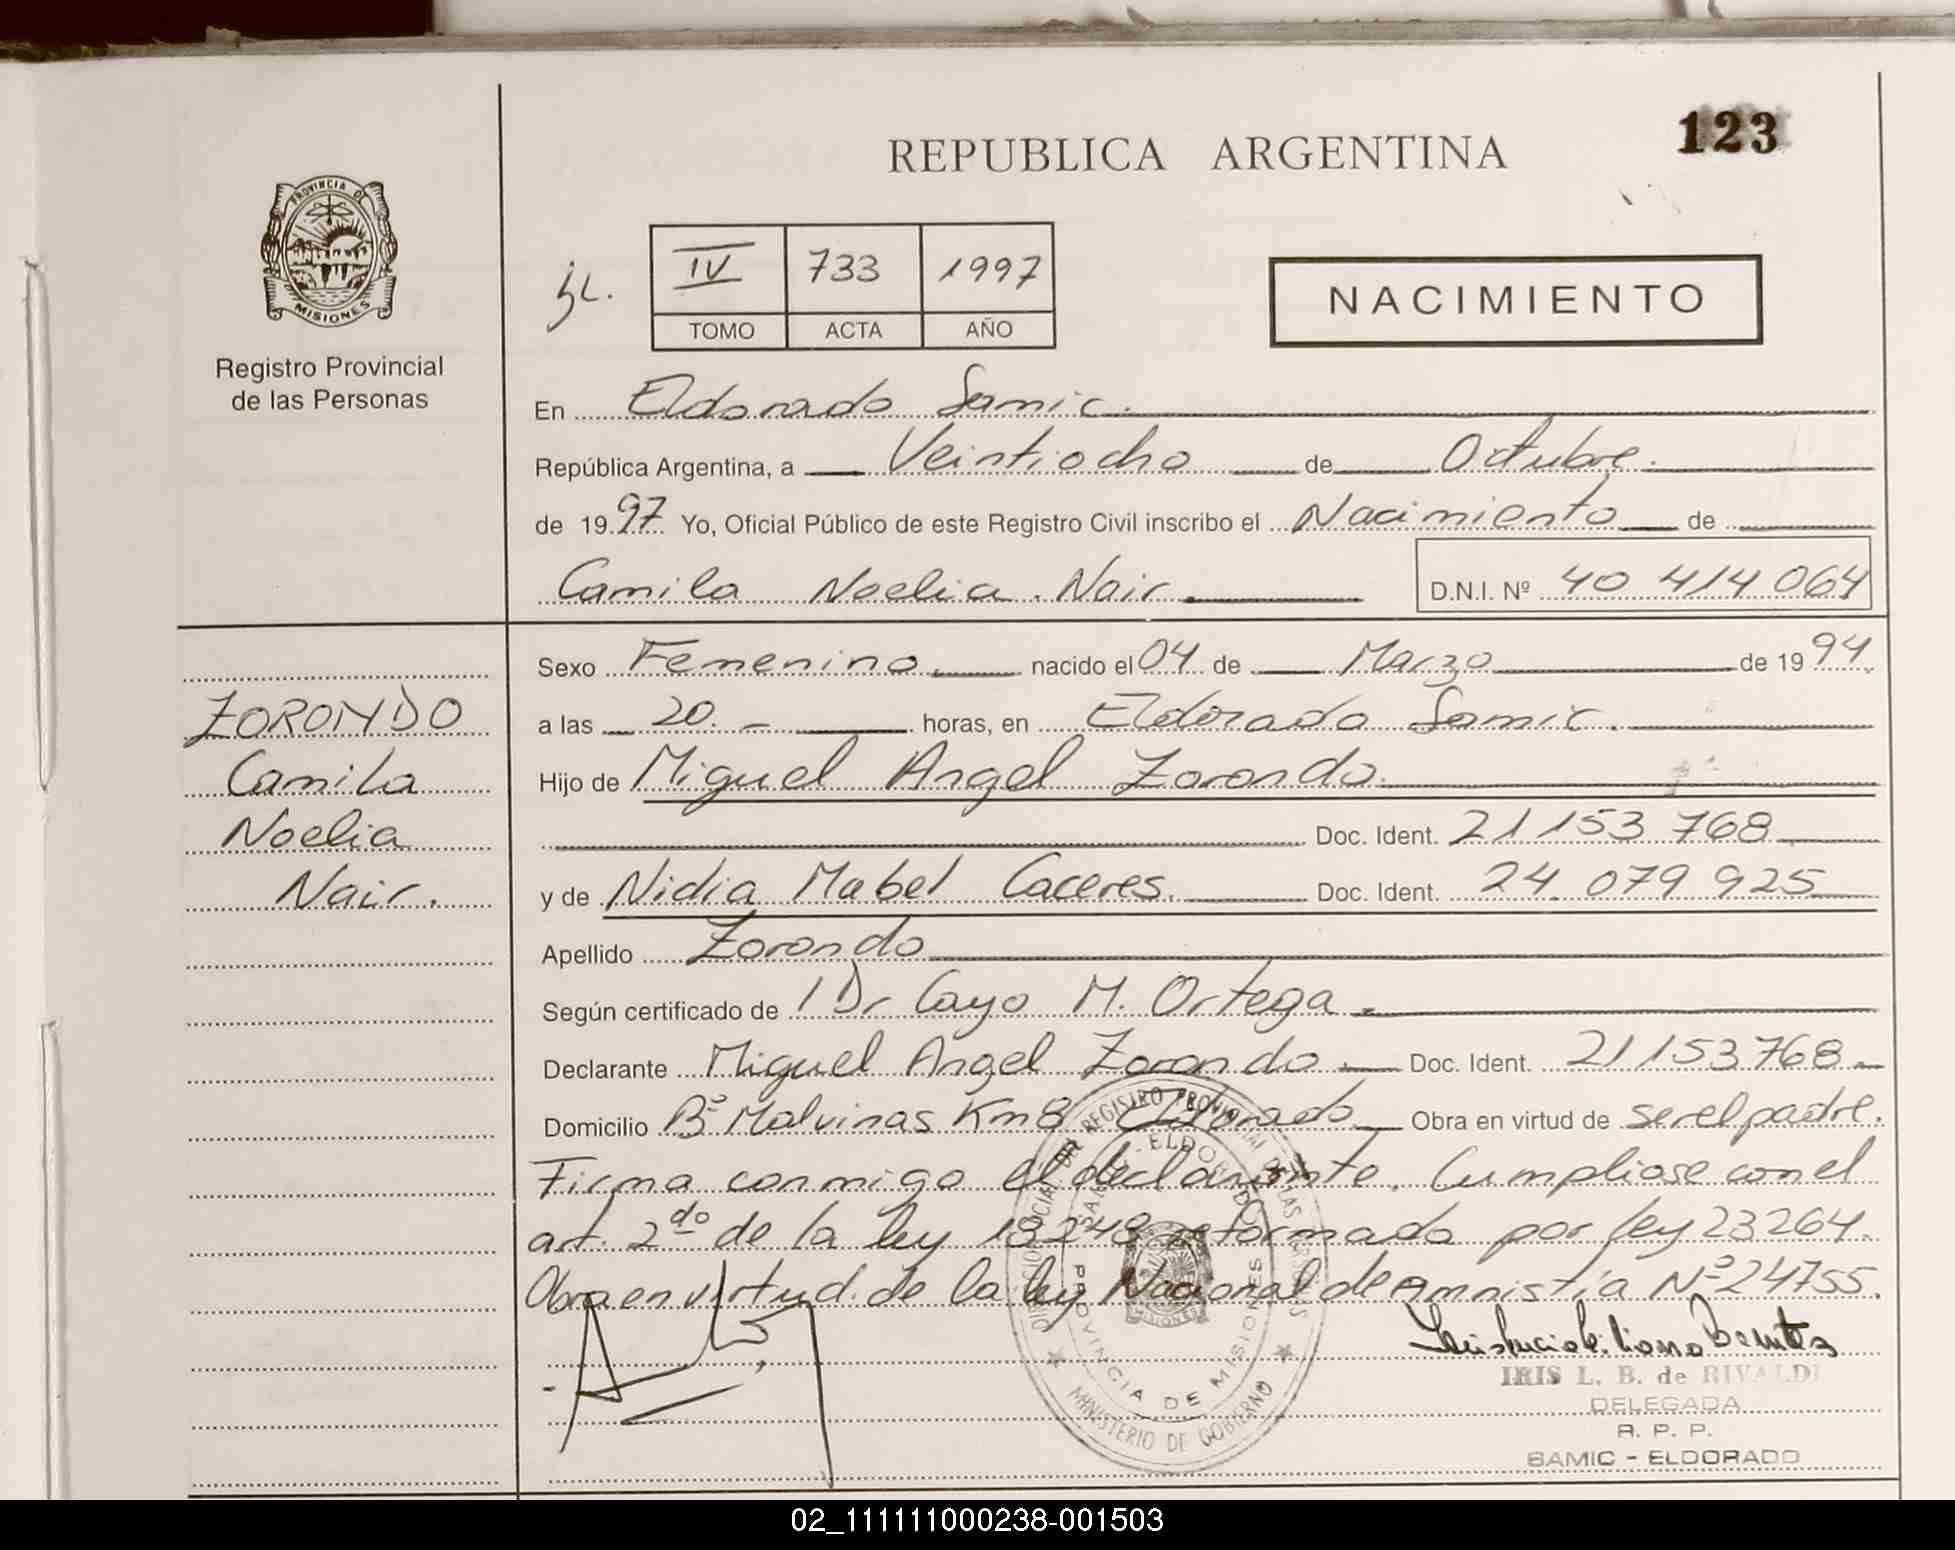 123
REPUBLICA ARGENTINA
PROVINCIA DE
MISIONES
Registro Provincial
de las Personas
IV 733 1997
TOMO ACTA AÑO
NACIMIENTO
En Eldorado Samic.
República Argentina, a Veintiocho de Octubre.
de 1997 Yo, Oficial Público de este Registro Civil inscribo el Nacimiento de
Camila Noelia Nair. D.N.I. Nº 40 414 064
ZORONDO
Camila
Noelia
Nair.
Sexo Femenino nacido el 04 de Marzo de 1994.
a las 20.- horas, en Eldorado Samic.
Hijo de Miguel Angel Zorondo.
Doc. Ident. 21 153 768
y de Nidia Mabel Caceres. Doc. Ident. 24.079 925
Apellido Zorondo
Según certificado de Dr Cayo M. Ortega.
Declarante Miguel Angel Zorondo Doc. Ident. 21153768
Domicilio Bº Malvinas Km8 Eldorado Obra en virtud de ser el padre.
Firma conmigo el declarante. Cumpliose con el
art. 2do de la ley 18248 reformada por ley 23264.
Obra en virtud de la ley Nacional de Amnistia Nº 24755.
PROVINCIA DE MISIONES
MINISTERIO DE GOBIERNO
IRIS L. B. de RIVALDI
DELEGADA
R. P. P.
SAMIC - ELDORADO
02_111111000238-001503